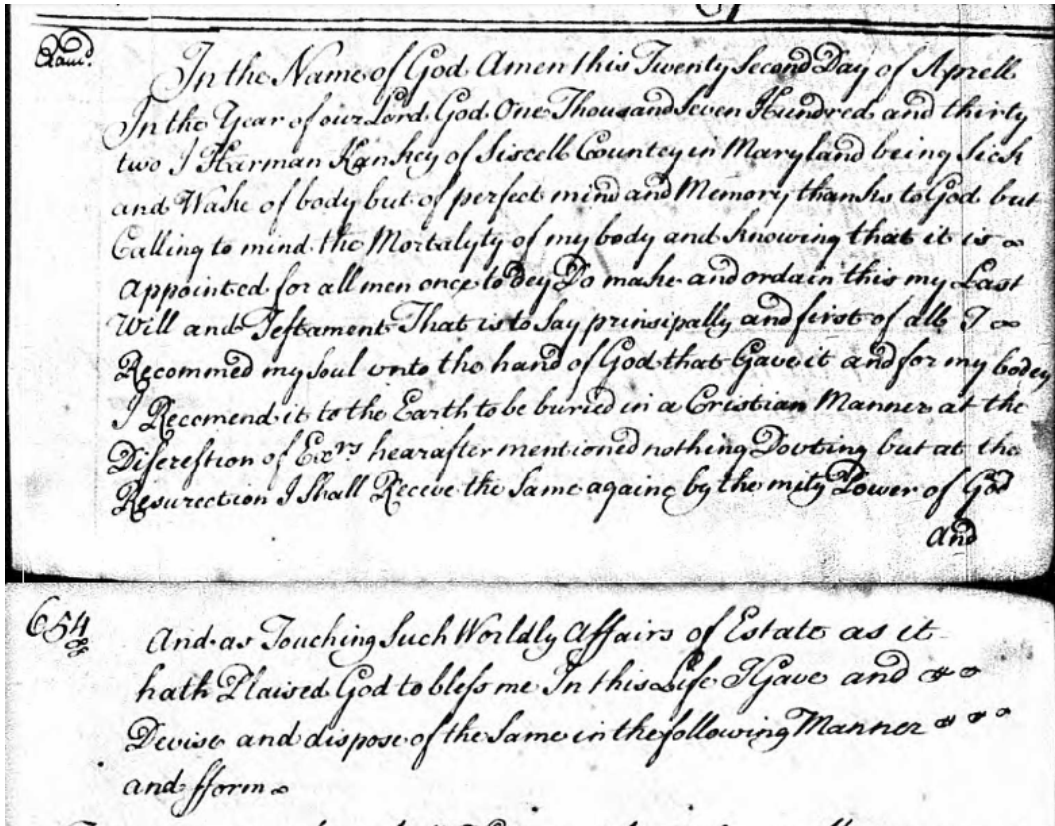 Exam.d
In the Name of God Amen this Twenty Second Day of Aprell
In the Year of our Lord God One Thousand Seven Hundred and thirty
two I Harman Kankey of Siscell Countey in Maryland being Sick
and Wake of body but of perfect mind and Memory thanks to God but
Calling to mind the Mortalyty of my body and Knowing that it is
Appointed for all men once to Dey Do make and ordain this my Last
Will and Testament That is to Say prinsipally and first of all I
Recommed my Soul unto the hand of God that Gave it and for my bodey
I Recomend it to the Earth to be buried in a Cristian Manner at the
Discrestion of Exrs hearafter mentioned nothing Dovting but at the
Resurection I Shall Receve the Same againe by the mity Power of God
And
654
And as Touching Such Worldly Affairs of Estate as it
hath Plaised God to bless me In this Life I Gave and
Devise and dispose of the Same in the following Manner
and fform